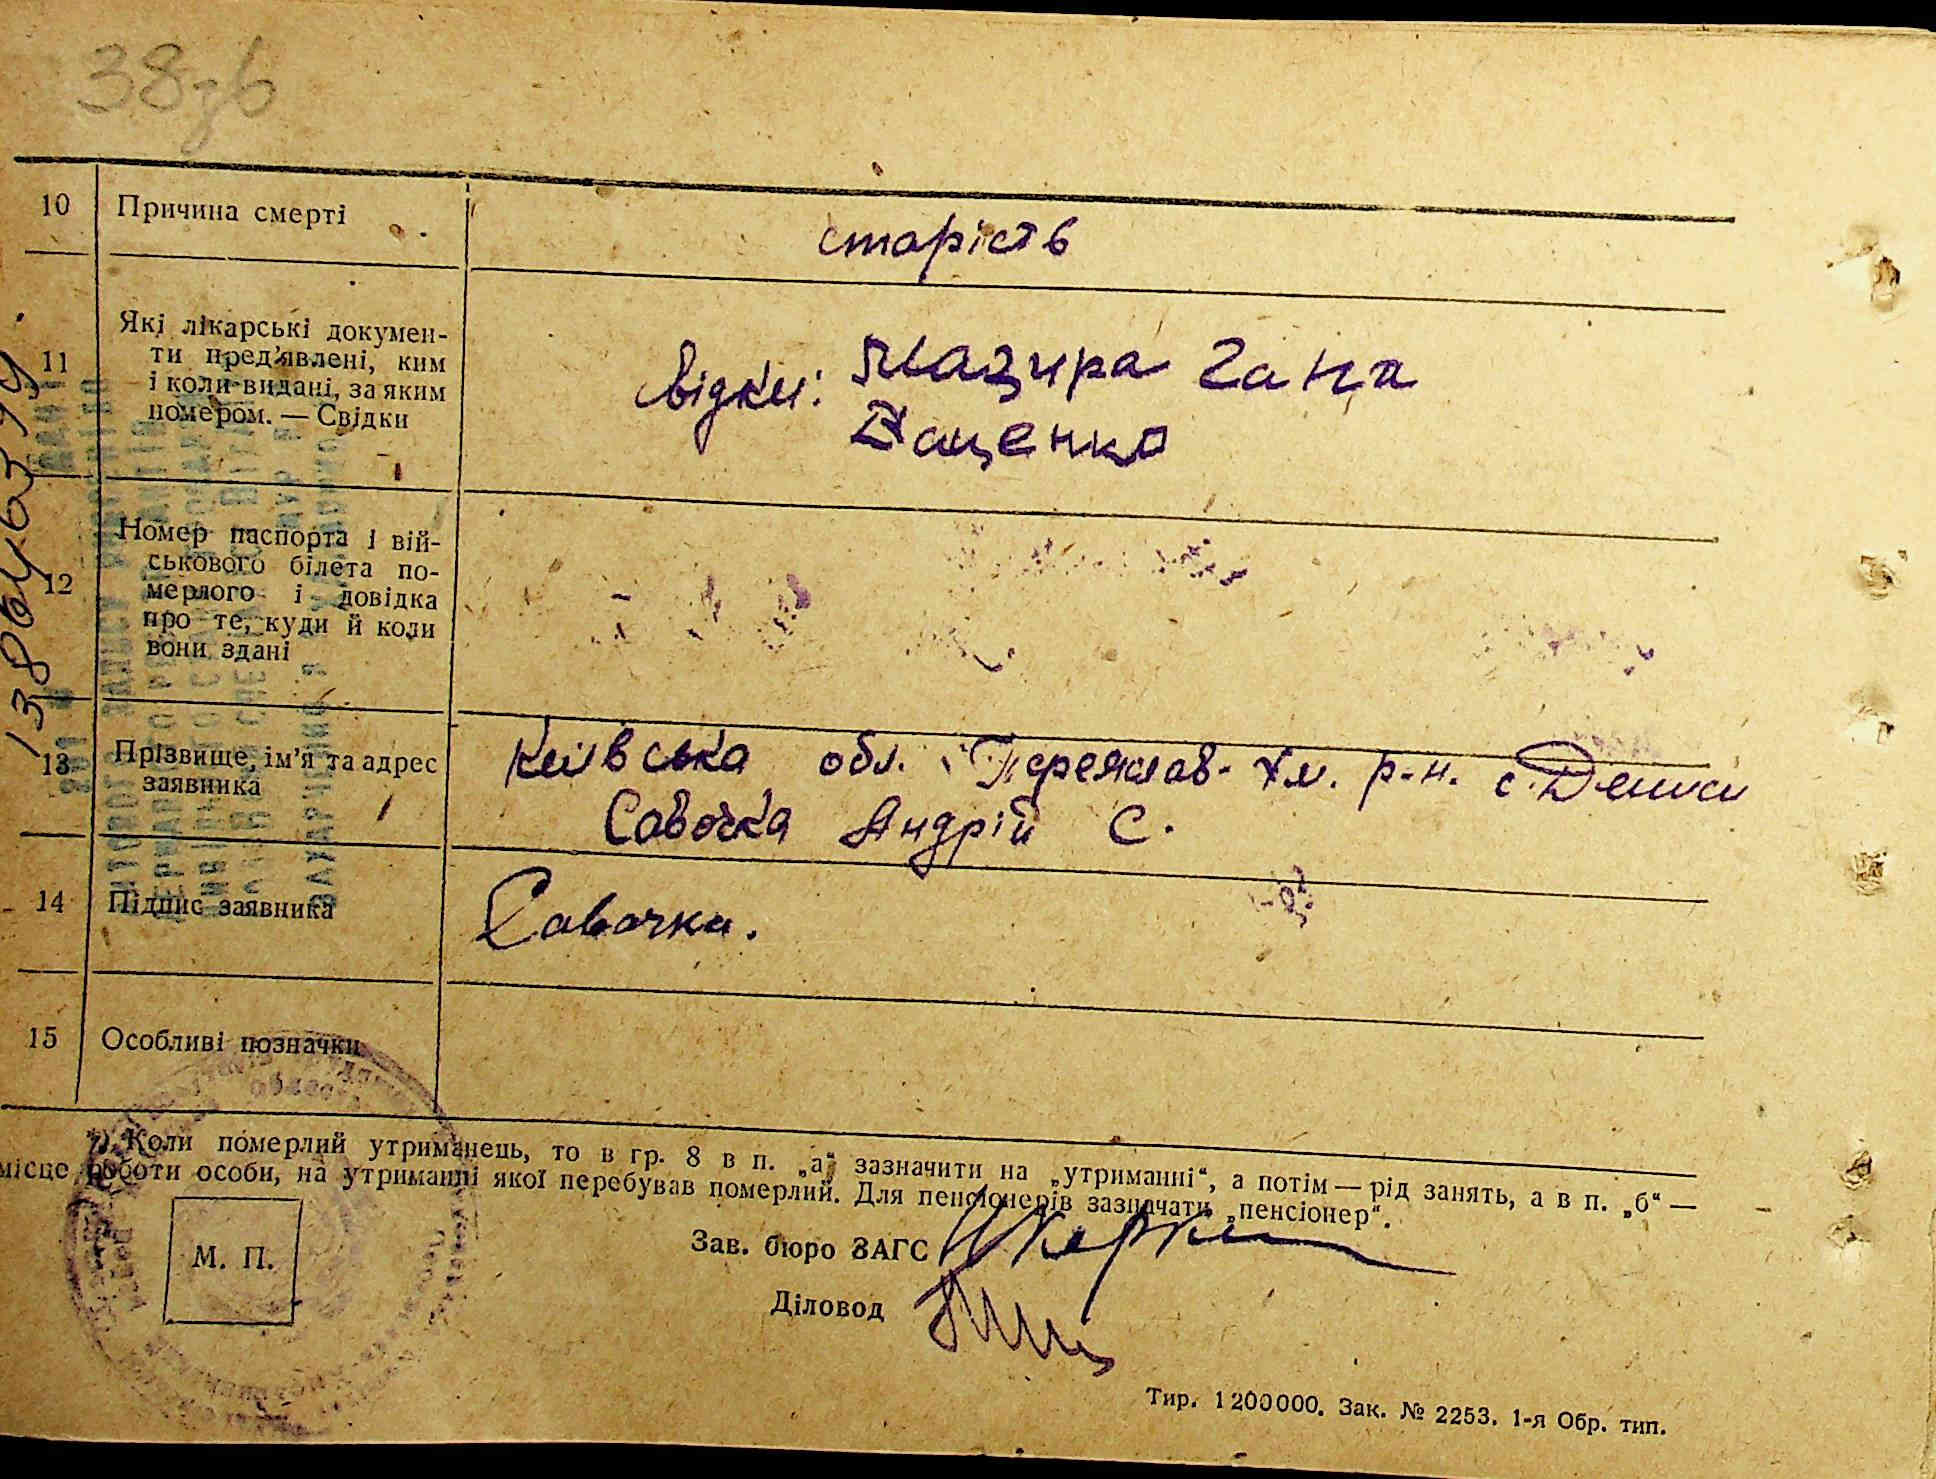 38зв
10 Причина смерті старість
11 Які лікарські докумен-
ти пред'явлені, ким
і коли видані, за яким
номером. — Свідки
Свідки: Мазира Гана
Даценко
12 Номер паспорта і вій-
ськового білета по-
мерлого і довідка
про те, куди й коли
вони здані
13 Прізвище, ім'я та адрес
заявника
Київська обл. Переяслав-Хм. р-н. с. Дениси
Савочка Андрій С.
14 Підпис заявника Савочка.
15 Особливі позначки
*) Коли померлий утриманець, то в гр. 8 в п. „а“ зазначити на „утриманні“, а потім — рід занять, а в п. „б“ —
місце роботи особи, на утриманні якої перебував померлий. Для пенсіонерів зазначати „пенсіонер“.
М. П.
Зав. бюро ЗАГС
Діловод
Тир. 1200000. Зак. № 2253. 1-я Обр. тип.